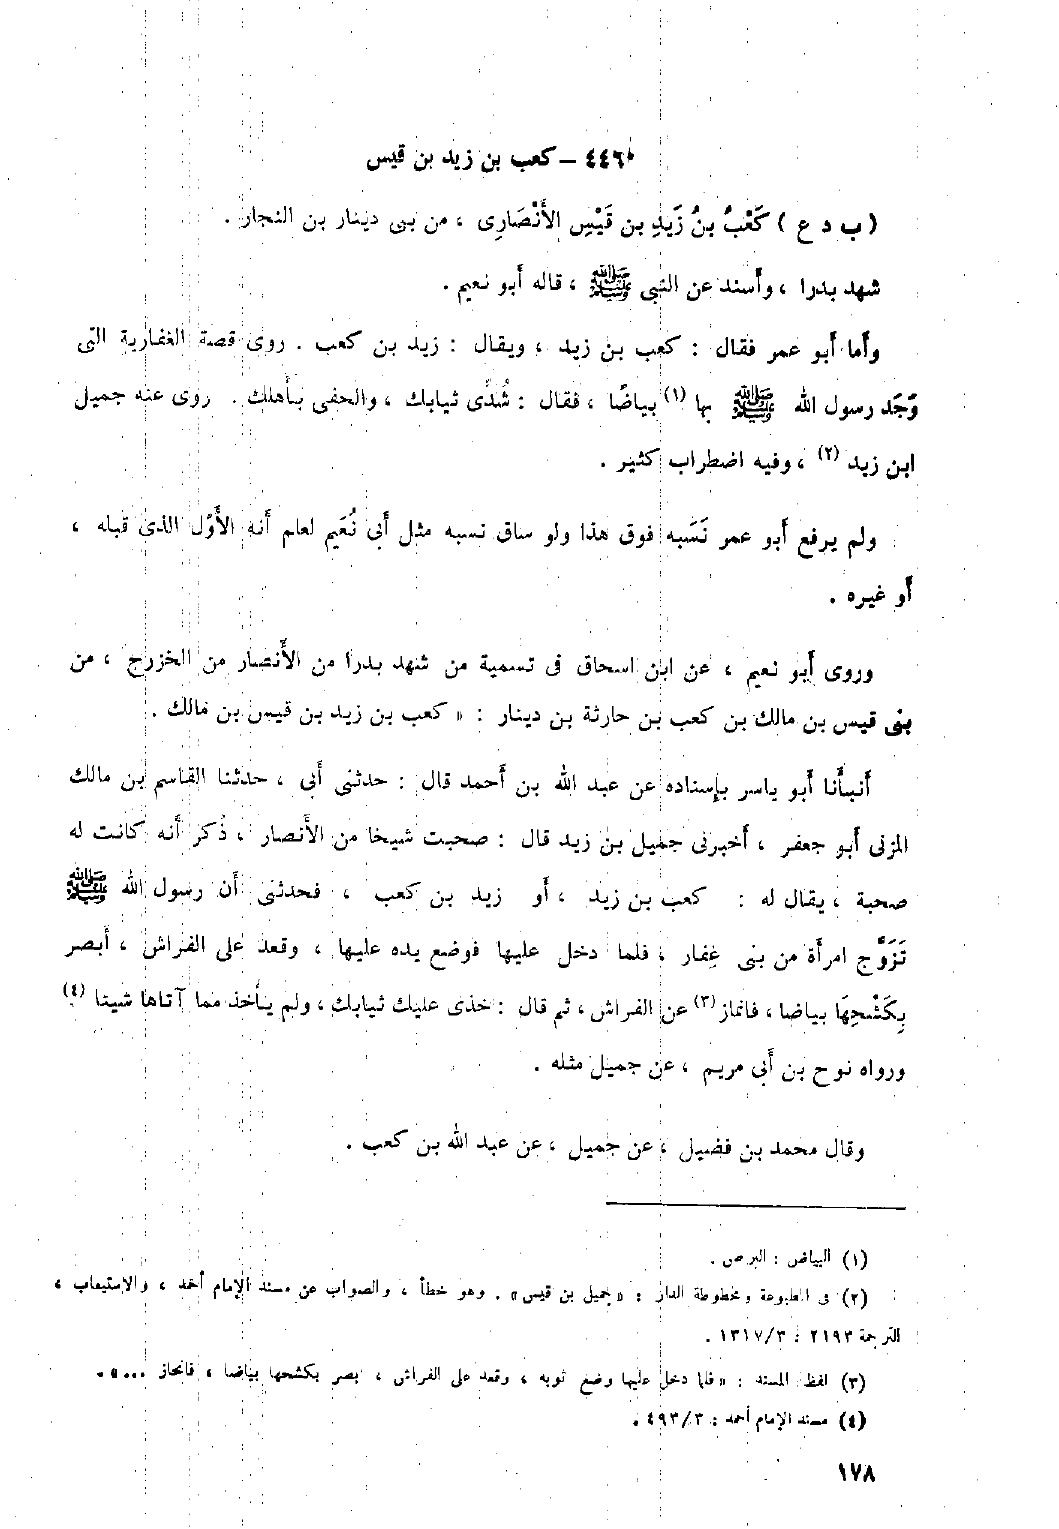 ٤٤٦٠ – كعب بن زيد بن قيس
( ب د ع ) كَعْبُ بنُ زَيدِ بن قَيْسِ الأَنْصَارِى ، من بنى دينار بن النجار .
شهد بدرا ، وأَسند عن النبى ﷺ ، قاله أَبو نعيم .
وأَما أَبو عمر فقال : كعب بن زيد ، ويقال : زيد بن كعب . روى قصة الغفارية التى
وَجَد رسول الله ﷺ بها (١) بياضًا ، فقال : شُدِّى ثيابك ، والحقى بأَهلك . روى عنه جميل
ابن زيد (٢) ، وفيه اضطراب كثير .
ولم يرفع أَبو عمر نَسَبه فوق هذا ولو ساق نسبه مثل أَبى نُعَيم لعلم أَنه الأَوَّل الذى قبله ،
أَو غيره .
وروى أَبو نعيم ، عن ابن اسحاق فى تسمية من شهد بدرا من الأَنصار من الخزرج ، من
بنى قيس بن مالك بن كعب بن حارثة بن دينار : « كعب بن زيد بن قيس بن مالك .
أَنبأَنا أَبو ياسر بإسناده عن عبد الله بن أَحمد قال : حدثنى أَبى ، حدثنا القاسم بن مالك
المزنى أَبو جعفر ، أَخبرنى جميل بن زيد قال : صحبت شيخا من الأَنصار ، ذُكر أَنه كانت له
صحبة ، يقال له : كعب بن زيد ، أَو زيد بن كعب ، فحدثنى أَن رسول الله ﷺ
تَزَوَّج امرأَة من بنى غِفار ، فلما دخل عليها فوضع يده عليها ، وقعد على الفراش ، أَبصر
بِكَشْحِهَا بياضا ، فانماز (٣) عن الفراش ، ثم قال : خذى عليك ثيابك ، ولم يأخذ مما آتاها شيئا (٤)
ورواه نوح بن أَبى مريم ، عن جميل مثله .
وقال محمد بن فضيل ، عن جميل ، عن عبد الله بن كعب .
(١) البياض : البرص .
(٢) فى المطبوعة ومخطوطة الدار : « جميل بن قيس » . وهو خطأ ، والصواب عن مسند الإمام أحمد ، والاستيعاب ،
الترجمة ٢١٩٣ : ١٣١٧/٣ .
(٣) لفظ المسند : « فلما دخل عليها وضع ثوبه ، وقعد على الفراش ، أبصر بكشحها بياضا ، فانحاز ... » .
(٤) مسند الإمام أحمد : ٤٩٣/٣ .
١٧٨